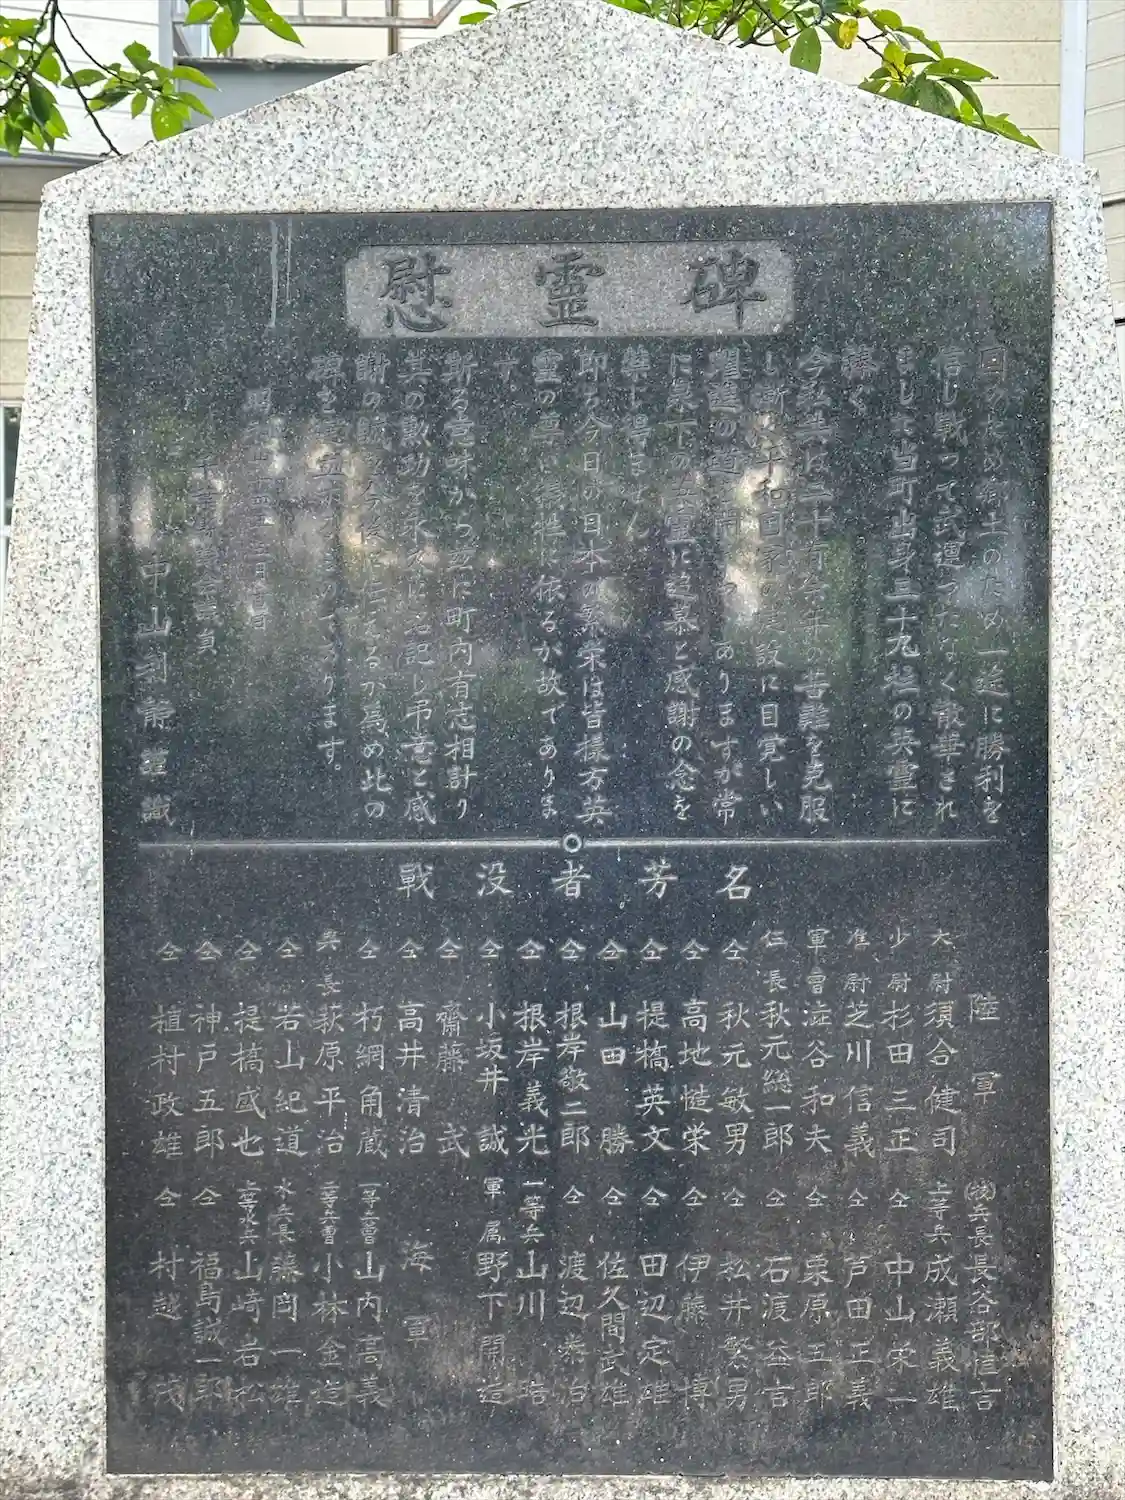 慰靈碑
国のため郷土のため一途に勝利を
信じ戦って武運つたなく散華され
ました当町出身三十九柱の英霊に
捧ぐ
今私共は二十有余年の苦難を克服
し新しい平和国家の建設に目覚しい
躍進の道を あゆ ありますが常
に皇下の英霊に追慕と感謝の念を
禁じ得ません
即ち今日の日本の繁栄は皆様方英
霊の尊い犠牲に依るが故でありま
す
斯る意味から茲に町内有志相計り
其の勲功を永久に記し弔意と感
謝の誠を今後に伝えるが為め此の
碑を建立 するのであります。
昭和四十 三 日
千 議会議員
中山利 謹識
戰没者芳名
陸軍
大尉 須合健司
少尉 杉田三正
准尉 芝川信義
軍曹 澁谷和夫
仁長 秋元総一郎
仝 秋元敏男
仝 高地 栄
仝 提橋英文
仝 山田勝
仝 根岸敬二郎
仝 根岸義光
仝 小坂井誠
仝 齋藤武
仝 高井清治
仝 朽網角蔵
兵長 萩原平治
仝 若山紀道
仝 提橋盛也
仝 神戸五郎
仝 植村政雄
(技)兵長 長谷部直吉
上等兵 成瀬義雄
仝 中山栄二
仝 芦田正義
仝 栗原五郎
仝 石渡益吉
仝 松井繁男
仝 伊藤博
仝 田辺定雄
仝 佐久間武雄
仝 渡辺 治
一等兵 山川 
軍属 野下開造
海軍
一等兵曹 山内高義
二等兵曹 小林金造
水兵長 藤岡一雄
上等水兵 山崎岩松
仝 福島誠一郎
仝 村越茂